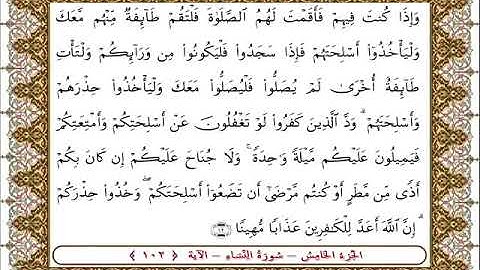 وَإِذَا كُنتَ فِيهِمْ فَأَقَمْتَ لَهُمُ الصَّلَوٰةَ فَلْتَقُمْ طَآئِفَةٌ مِّنْهُم مَّعَكَ
وَلْيَأْخُذُوٓا۟ أَسْلِحَتَهُمْ فَإِذَا سَجَدُوا۟ فَلْيَكُونُوا۟ مِن وَرَآئِكُمْ وَلْتَأْتِ
طَآئِفَةٌ أُخْرَىٰ لَمْ يُصَلُّوا۟ فَلْيُصَلُّوا۟ مَعَكَ وَلْيَأْخُذُوا۟ حِذْرَهُمْ
وَأَسْلِحَتَهُمْ ۗ وَدَّ الَّذِينَ كَفَرُوا۟ لَوْ تَغْفُلُونَ عَنْ أَسْلِحَتِكُمْ وَأَمْتِعَتِكُمْ
فَيَمِيلُونَ عَلَيْكُم مَّيْلَةً وَٰحِدَةً ۚ وَلَا جُنَاحَ عَلَيْكُمْ إِن كَانَ بِكُمْ
أَذًى مِّن مَّطَرٍ أَوْ كُنتُم مَّرْضَىٰٓ أَن تَضَعُوٓا۟ أَسْلِحَتَكُمْ ۖ وَخُذُوا۟ حِذْرَكُمْ
ۗ إِنَّ اللَّهَ أَعَدَّ لِلْكَٰفِرِينَ عَذَابًا مُّهِينًا ﴿١٠٢﴾
الجزء الخامس – سورة النساء – الآية ﴿ ١٠٢ ﴾